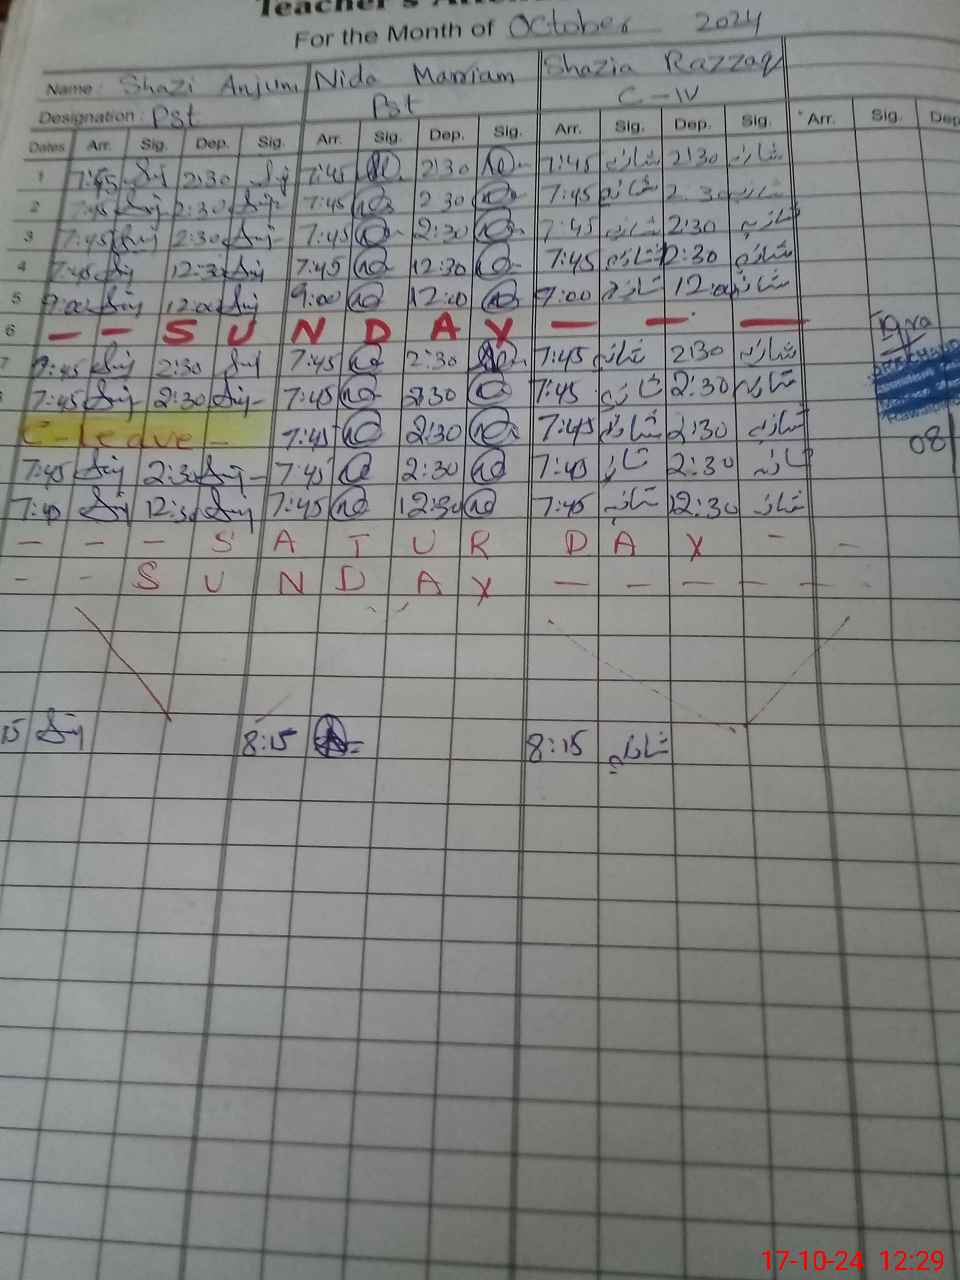 Teacher's
For the Month of October 2024
Name: Shazi Anjum Nida Marriam Shazia Razzaq
Designation: Pst Pst C-IV
Dates Arr. Sig. Dep. Sig. Arr. Sig. Dep. Sig. Arr. Sig. Dep. Sig. Arr. Sig. Dep
1 7:45 2:30 7:45 2:30 7:45 شازیہ 2:30 شازیہ
2 7:45 2:30 7:45 2 30 7:45 شازیہ 2:30 شازیہ
3 7:45 2:30 7:45 2:30 7:45 شازیہ 2:30 شازیہ
4 7:45 12:30 7:45 12:30 7:45 شازیہ 12:30 شازیہ
5 9:00 12:00 9:00 12:00 9:00 شازیہ 12:00 شازیہ
6 - - S U N D A Y - - -
7 7:45 2:30 7:45 2:30 7:45 شازیہ 2:30 شازیہ
7:45 2:30 7:45 2:30 7:45 شازیہ 2:30 شازیہ
C-leave - 7:45 2:30 7:45 شازیہ 2:30 شازیہ
08
7:45 2:30 7:45 2:30 7:45 شازیہ 2:30 شازیہ
7:45 12:30 7:45 12:30 7:45 شازیہ 12:30 شازیہ
- - - S A T U R D A Y - -
- - S U N D A Y - - - - -
15 8:15 8:15 شازیہ
17-10-24 12:29